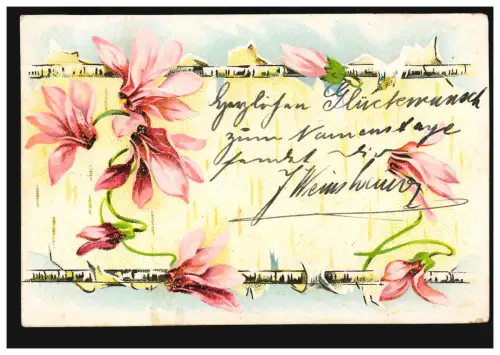 Herzlichen Glückwunsch
zum Namenstage
sendet Dir
J